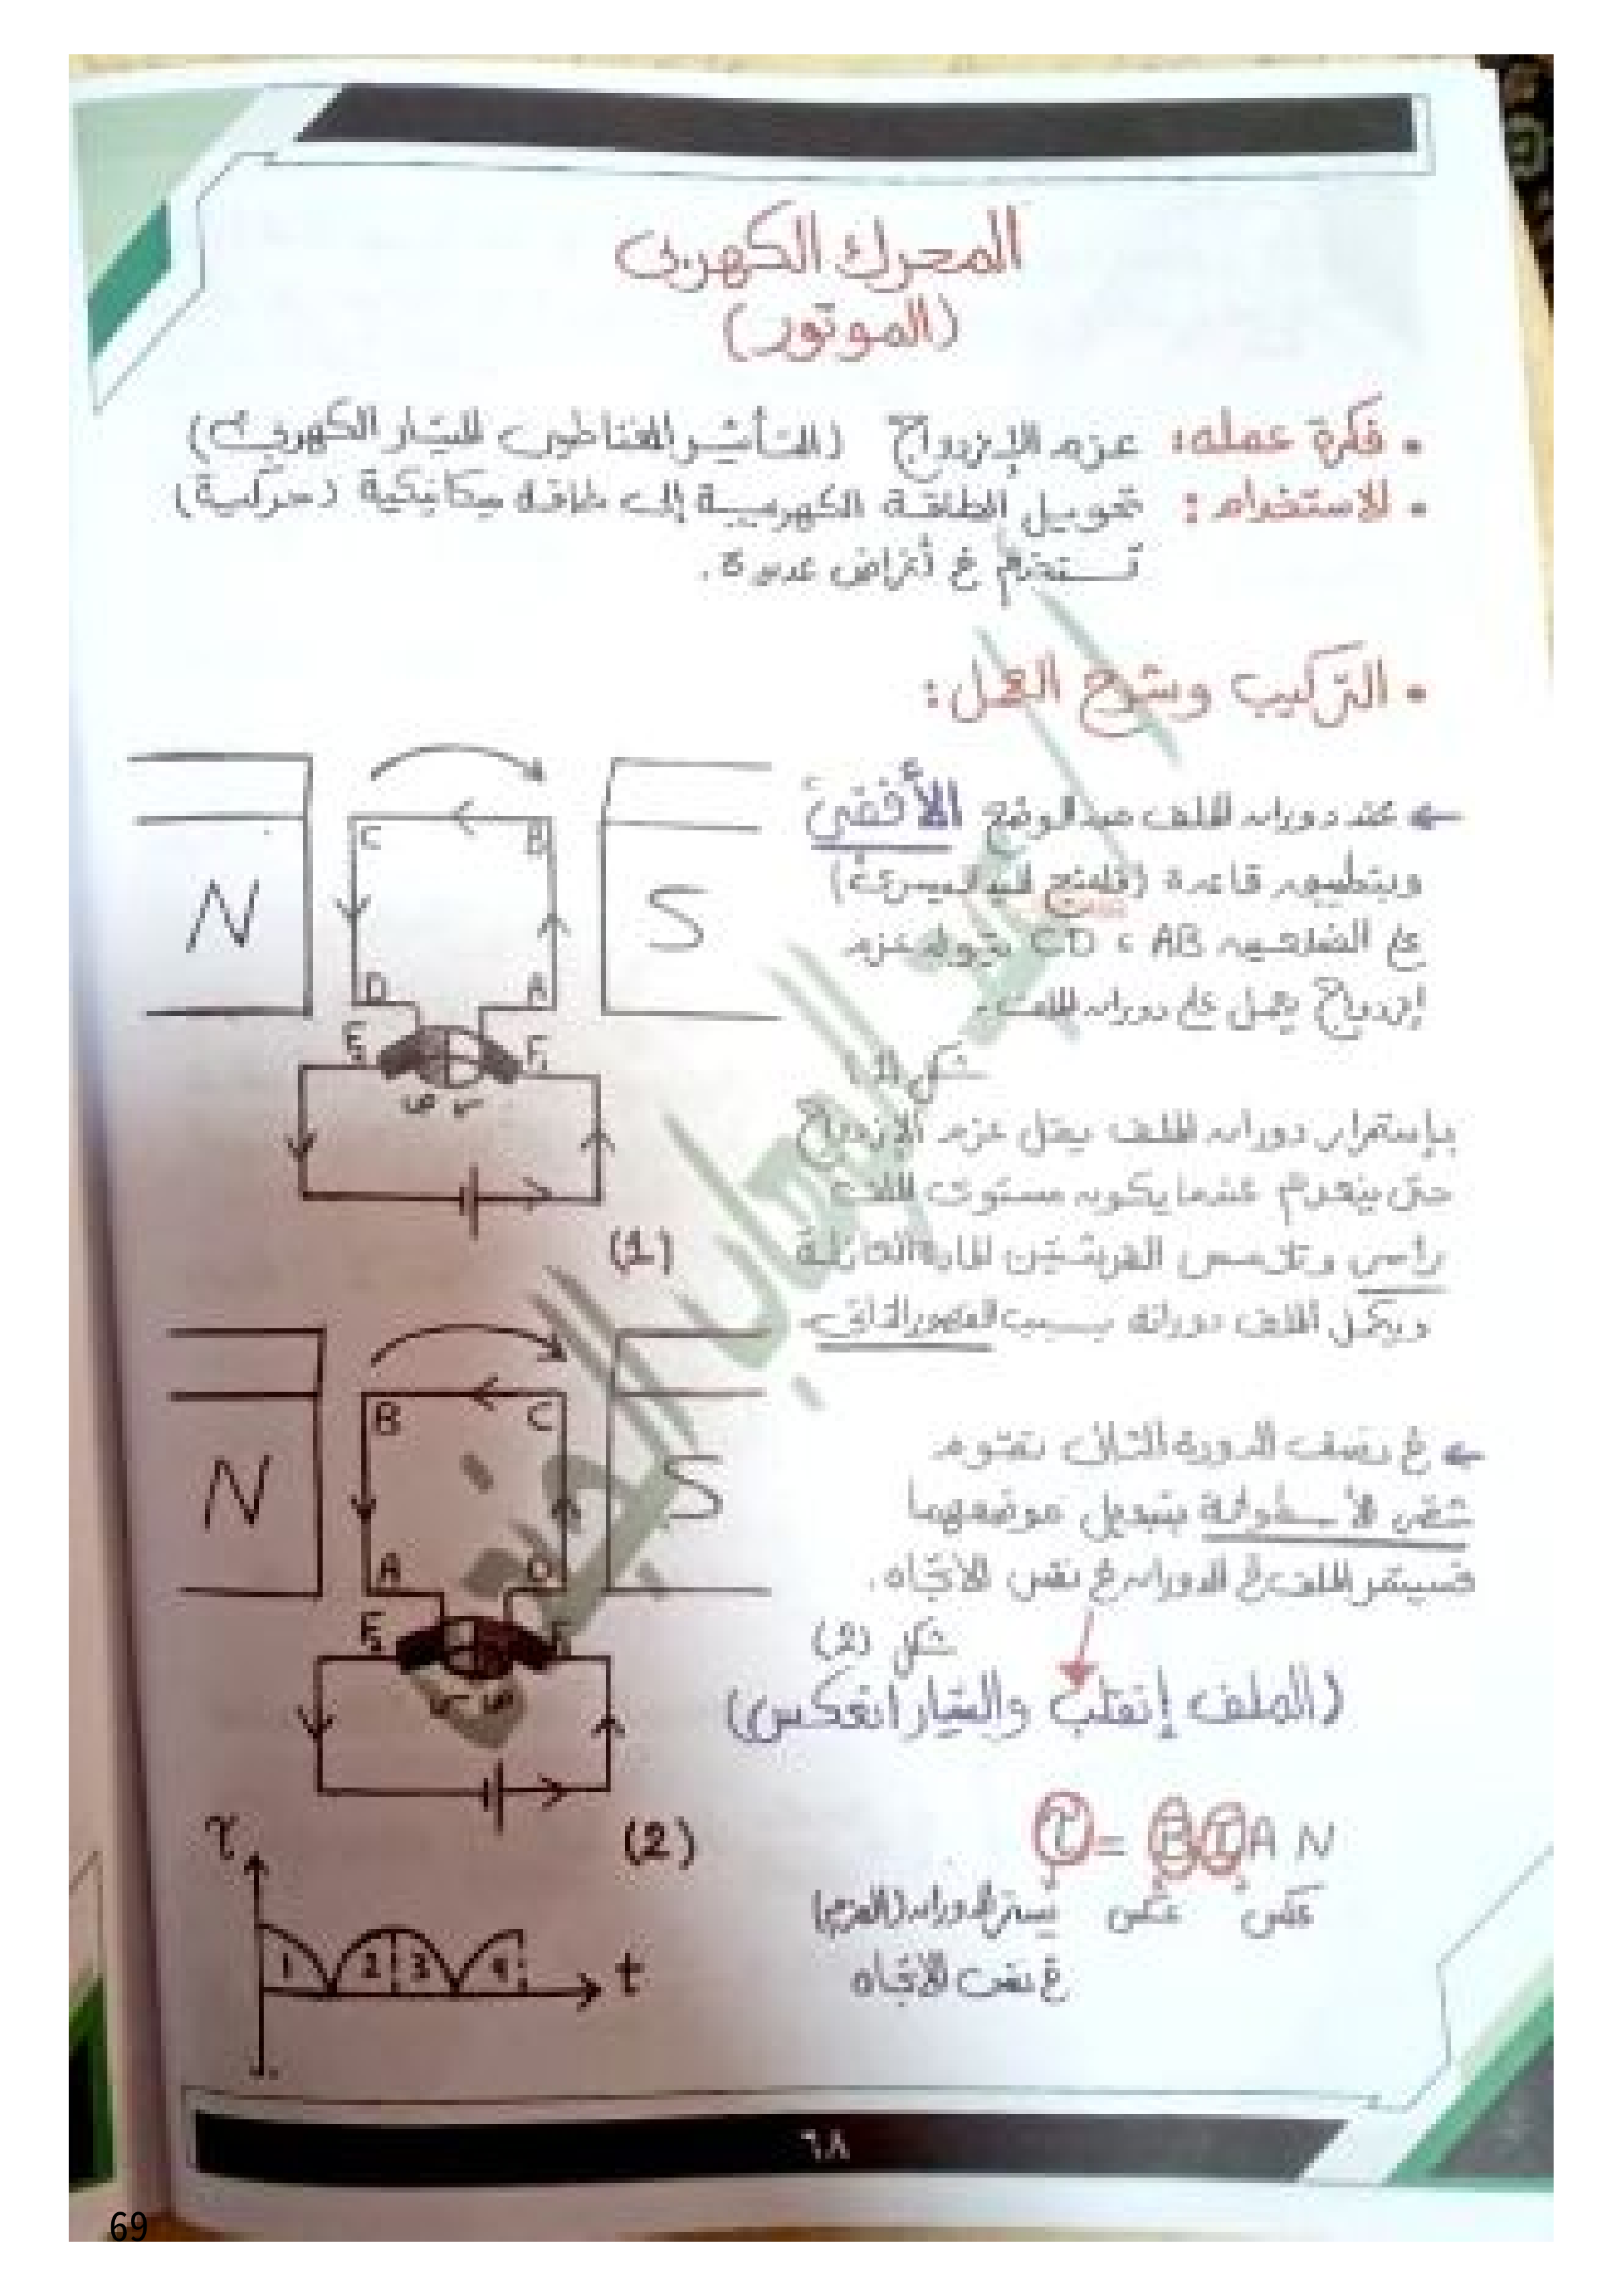 المحرك الكهربى
(الموتور)
• فكرة عمله: عزم الإزدواج (التأثير المغناطيسى للتيار الكهربى)
• الاستخدام: تحويل الطاقة الكهربية إلى طاقة ميكانيكية (حركية)
تستخدم فى أغراض عديدة.
• التركيب وشرح العمل:
← عند دوران الملف من الوضع الأفقي
وبتطبيق قاعدة (فلمنج لليد اليسرى)
على الضلعين AB ، CD يتولد عزم
إزدواج يعمل على دوران الملف.
شكل (1)
بإستمرار دوران الملف يقل عزم الإزدواج
حتى ينعدم عندما يكون مستوى الملف
رأسى وتلامس الفرشتين المادة العازلة
ويكمل الملف دورانه بسبب القصور الذاتى.
← فى نصف الدورة الثانى تقوم
شقى الأسطوانة بتبديل موضعهما
فسيتمر الملف فى الدوران فى نفس الاتجاه.
شكل (2)
(الملف إنقلب والتيار انعكس)
τ = B I A N
عكس عكس يستمر الدوران (العزم)
فى نفس الاتجاه
C B
N S
D A
F₂ F₁
(1)
B C
N S
A D
F₂
(2)
τ
1 2 3 4 t
٦٨
69